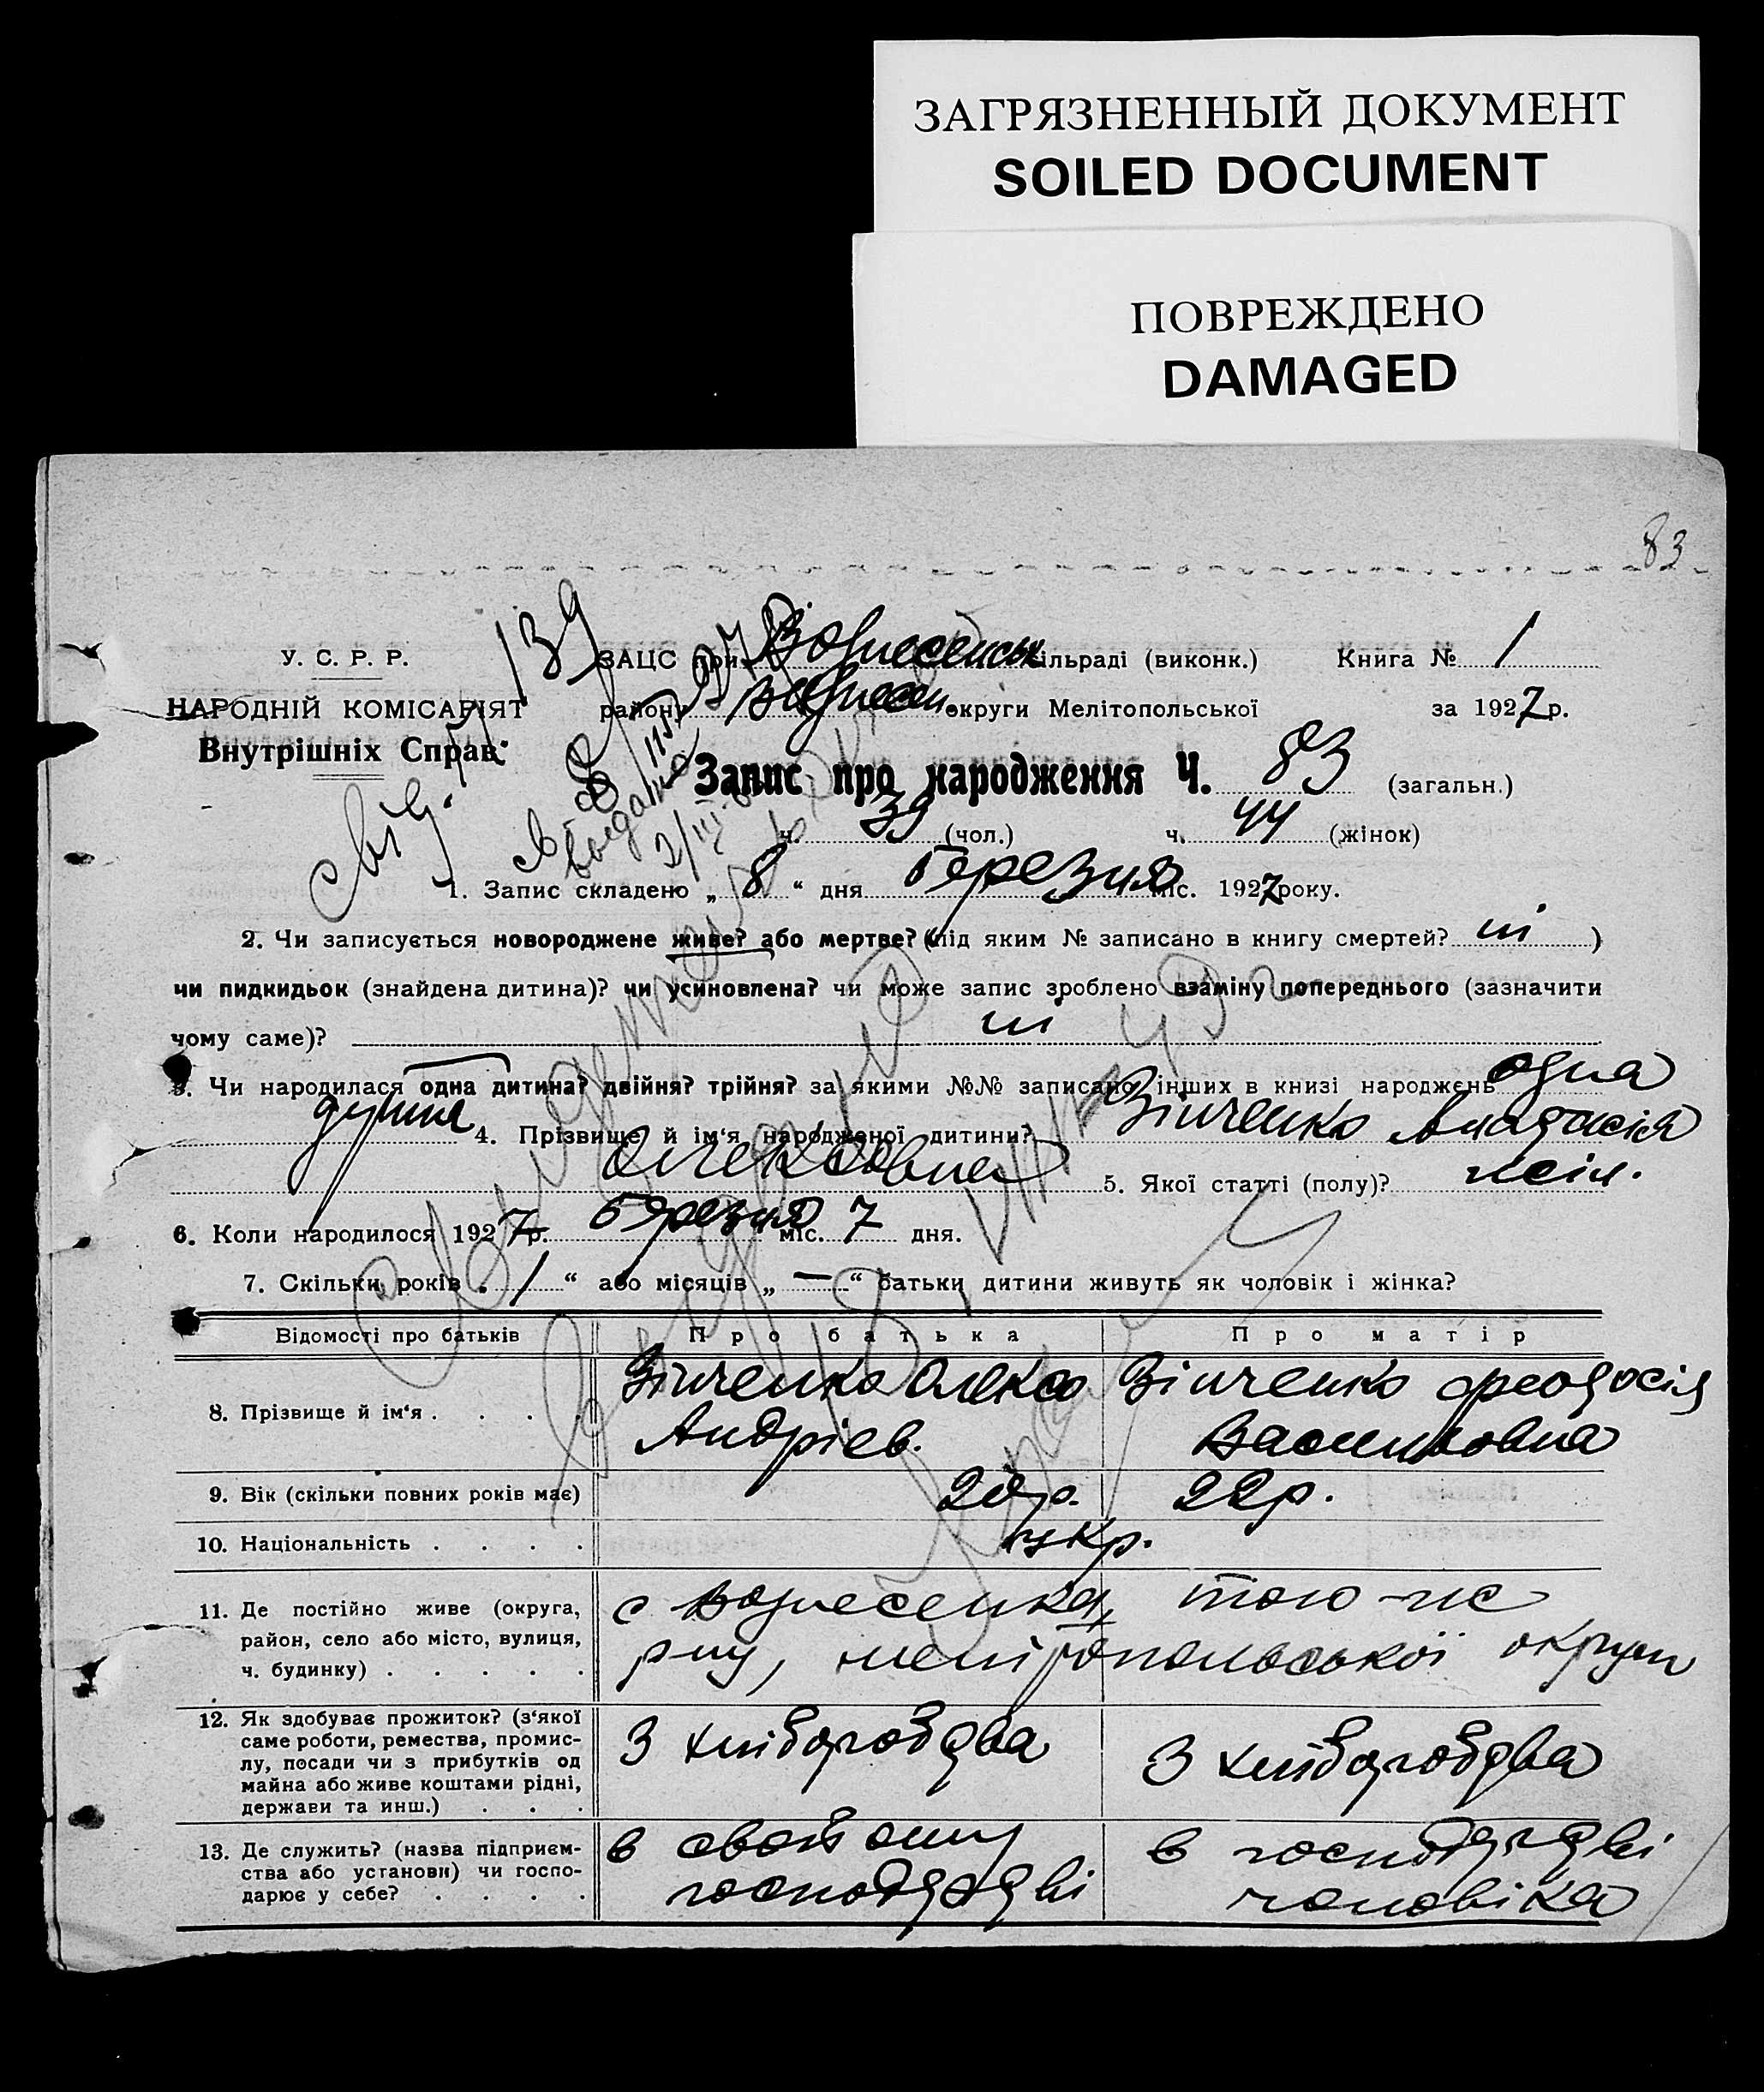 ЗАГРЯЗНЕННЫЙ ДОКУМЕНТ
SOILED DOCUMENT
ПОВРЕЖДЕНО
DAMAGED
83
У. С. Р. Р.
НАРОДНІЙ КОМІСАРІЯТ
Внутрішніх Справ.
139
ЗАЦС при Вознесенськ сільраді (виконк.) Книга № 1
району Вознесен. округи Мелітопольської за 1927 р.
Запис про народження Ч. 83 (загальн.)
ч. 39 (чол.) ч. 44 (жінок)
1. Запис складено „ 8 “ дня березня міс. 1927 року.
2. Чи записується новороджене живе? або мертве? (під яким № записано в книгу смертей? ні )
чи пидкидьок (знайдена дитина)? чи усиновлена? чи може запис зроблено взаміну попереднього (зазначити
чому саме)? ні
3. Чи народилася одна дитина? двійня? трійня? за якими №№ записано інших в книзі народжень одна
4. Прізвище й ім‘я народженої дитини? Зінченко Анастасія
Олексовна 5. Якої статті (полу)? жін.
6. Коли народилося 1927 р. березня міс. 7 дня.
7. Скільки років „ 1 “ або місяців „ — “ батьки дитини живуть як чоловік і жінка?
Відомості про батьків Про батька Про матір
8. Прізвище й ім‘я . . . . Зінченко Олекса Зінченко Феодосія
Андріев. Васильовна
9. Вік (скільки повних років має) 20р. 22р.
10. Національність . . . . укр.
11. Де постійно живе (округа,
район, село або місто, вулиця,
ч. будинку) . . . . .
с Вознесенка, того-же
р-ну, мелітопольської округи
12. Як здобуває прожиток? (з‘якої
саме роботи, ремества, промис-
лу, посади чи з прибутків од
майна або живе коштами рідні,
держави та инш.) . . .
З хліборобства З хліборобства
13. Де служить? (назва підприєм-
ства або установи) чи госпо-
дарює у себе? . . . .
в своєому в господарстві
господарстві чоловіка